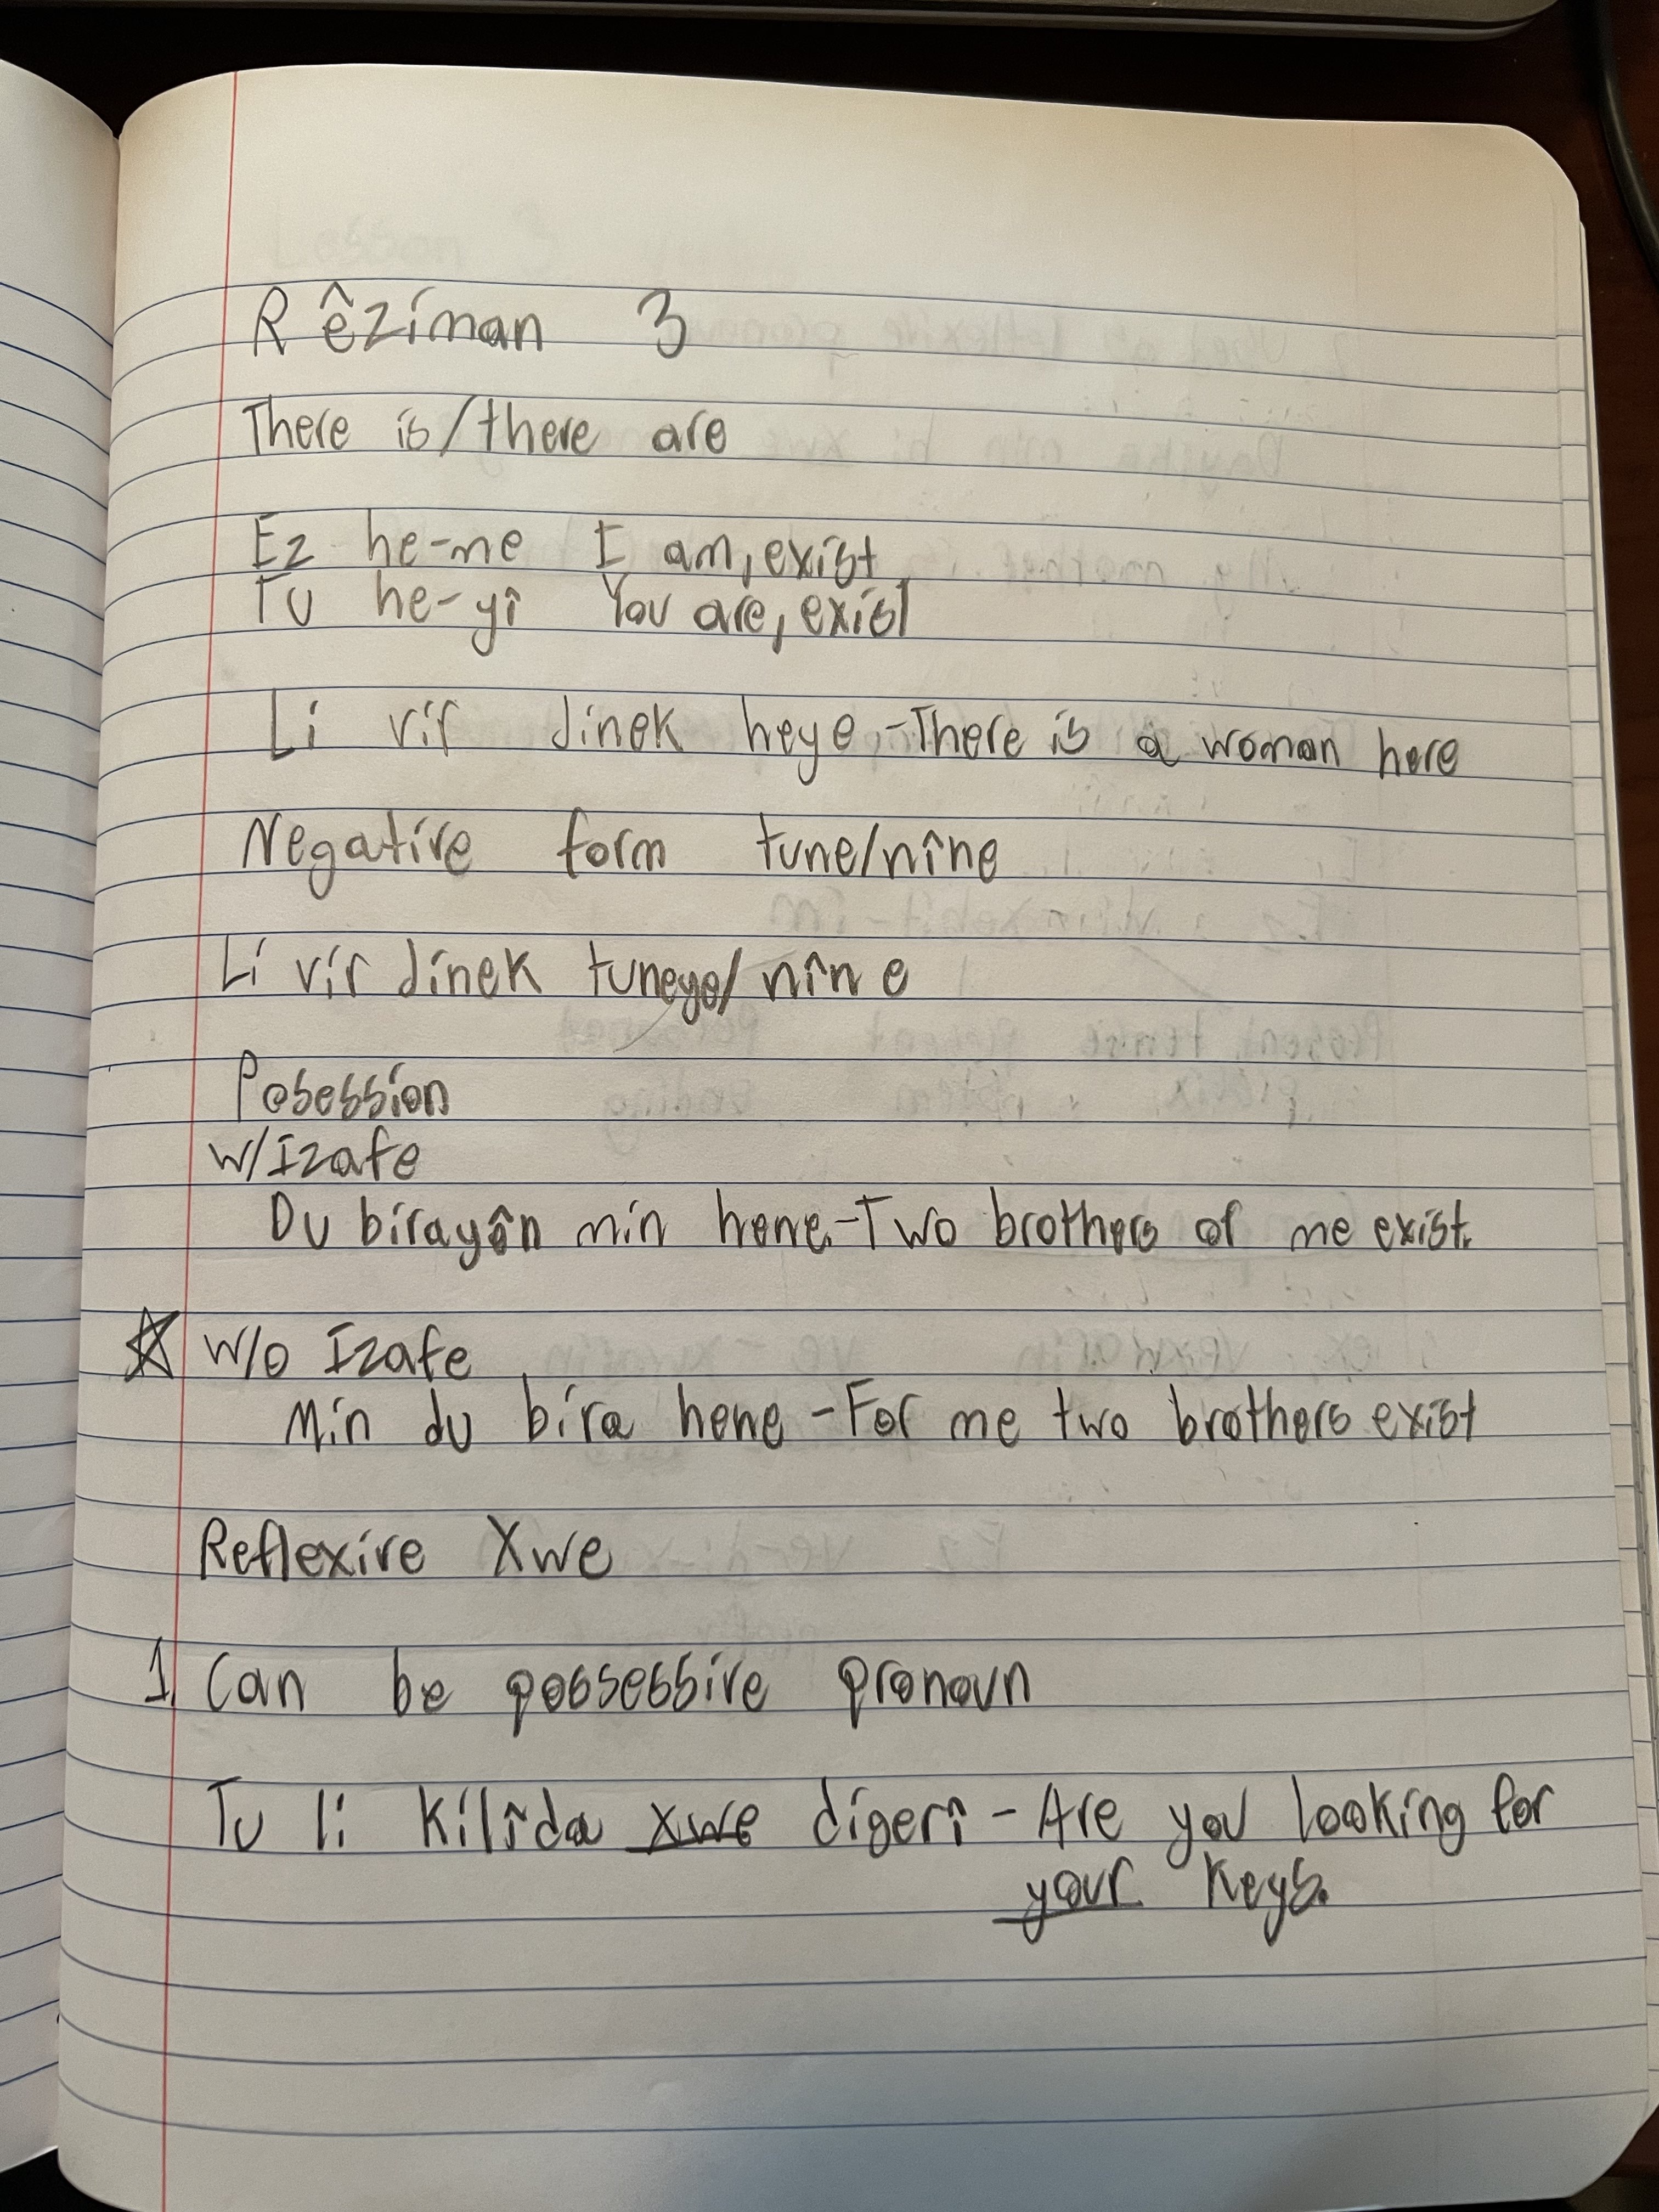 Rêziman 3
There is/there are
Ez he-me I am, exist
Tu he-yî You are, exist
Li vir jinek heye,-There is a woman here
Negative form tune/nîne
Li vir jinek tuneye/nîne
Posession
w/Izafe
Du birayên min hene.-Two brothers of me exist.
☆ w/o Izafe
Min du bira hene -For me two brothers exist
Reflexive Xwe
1. Can be possessive pronoun
Tu li kilîda xwe digerî - Are you looking for
your keys.